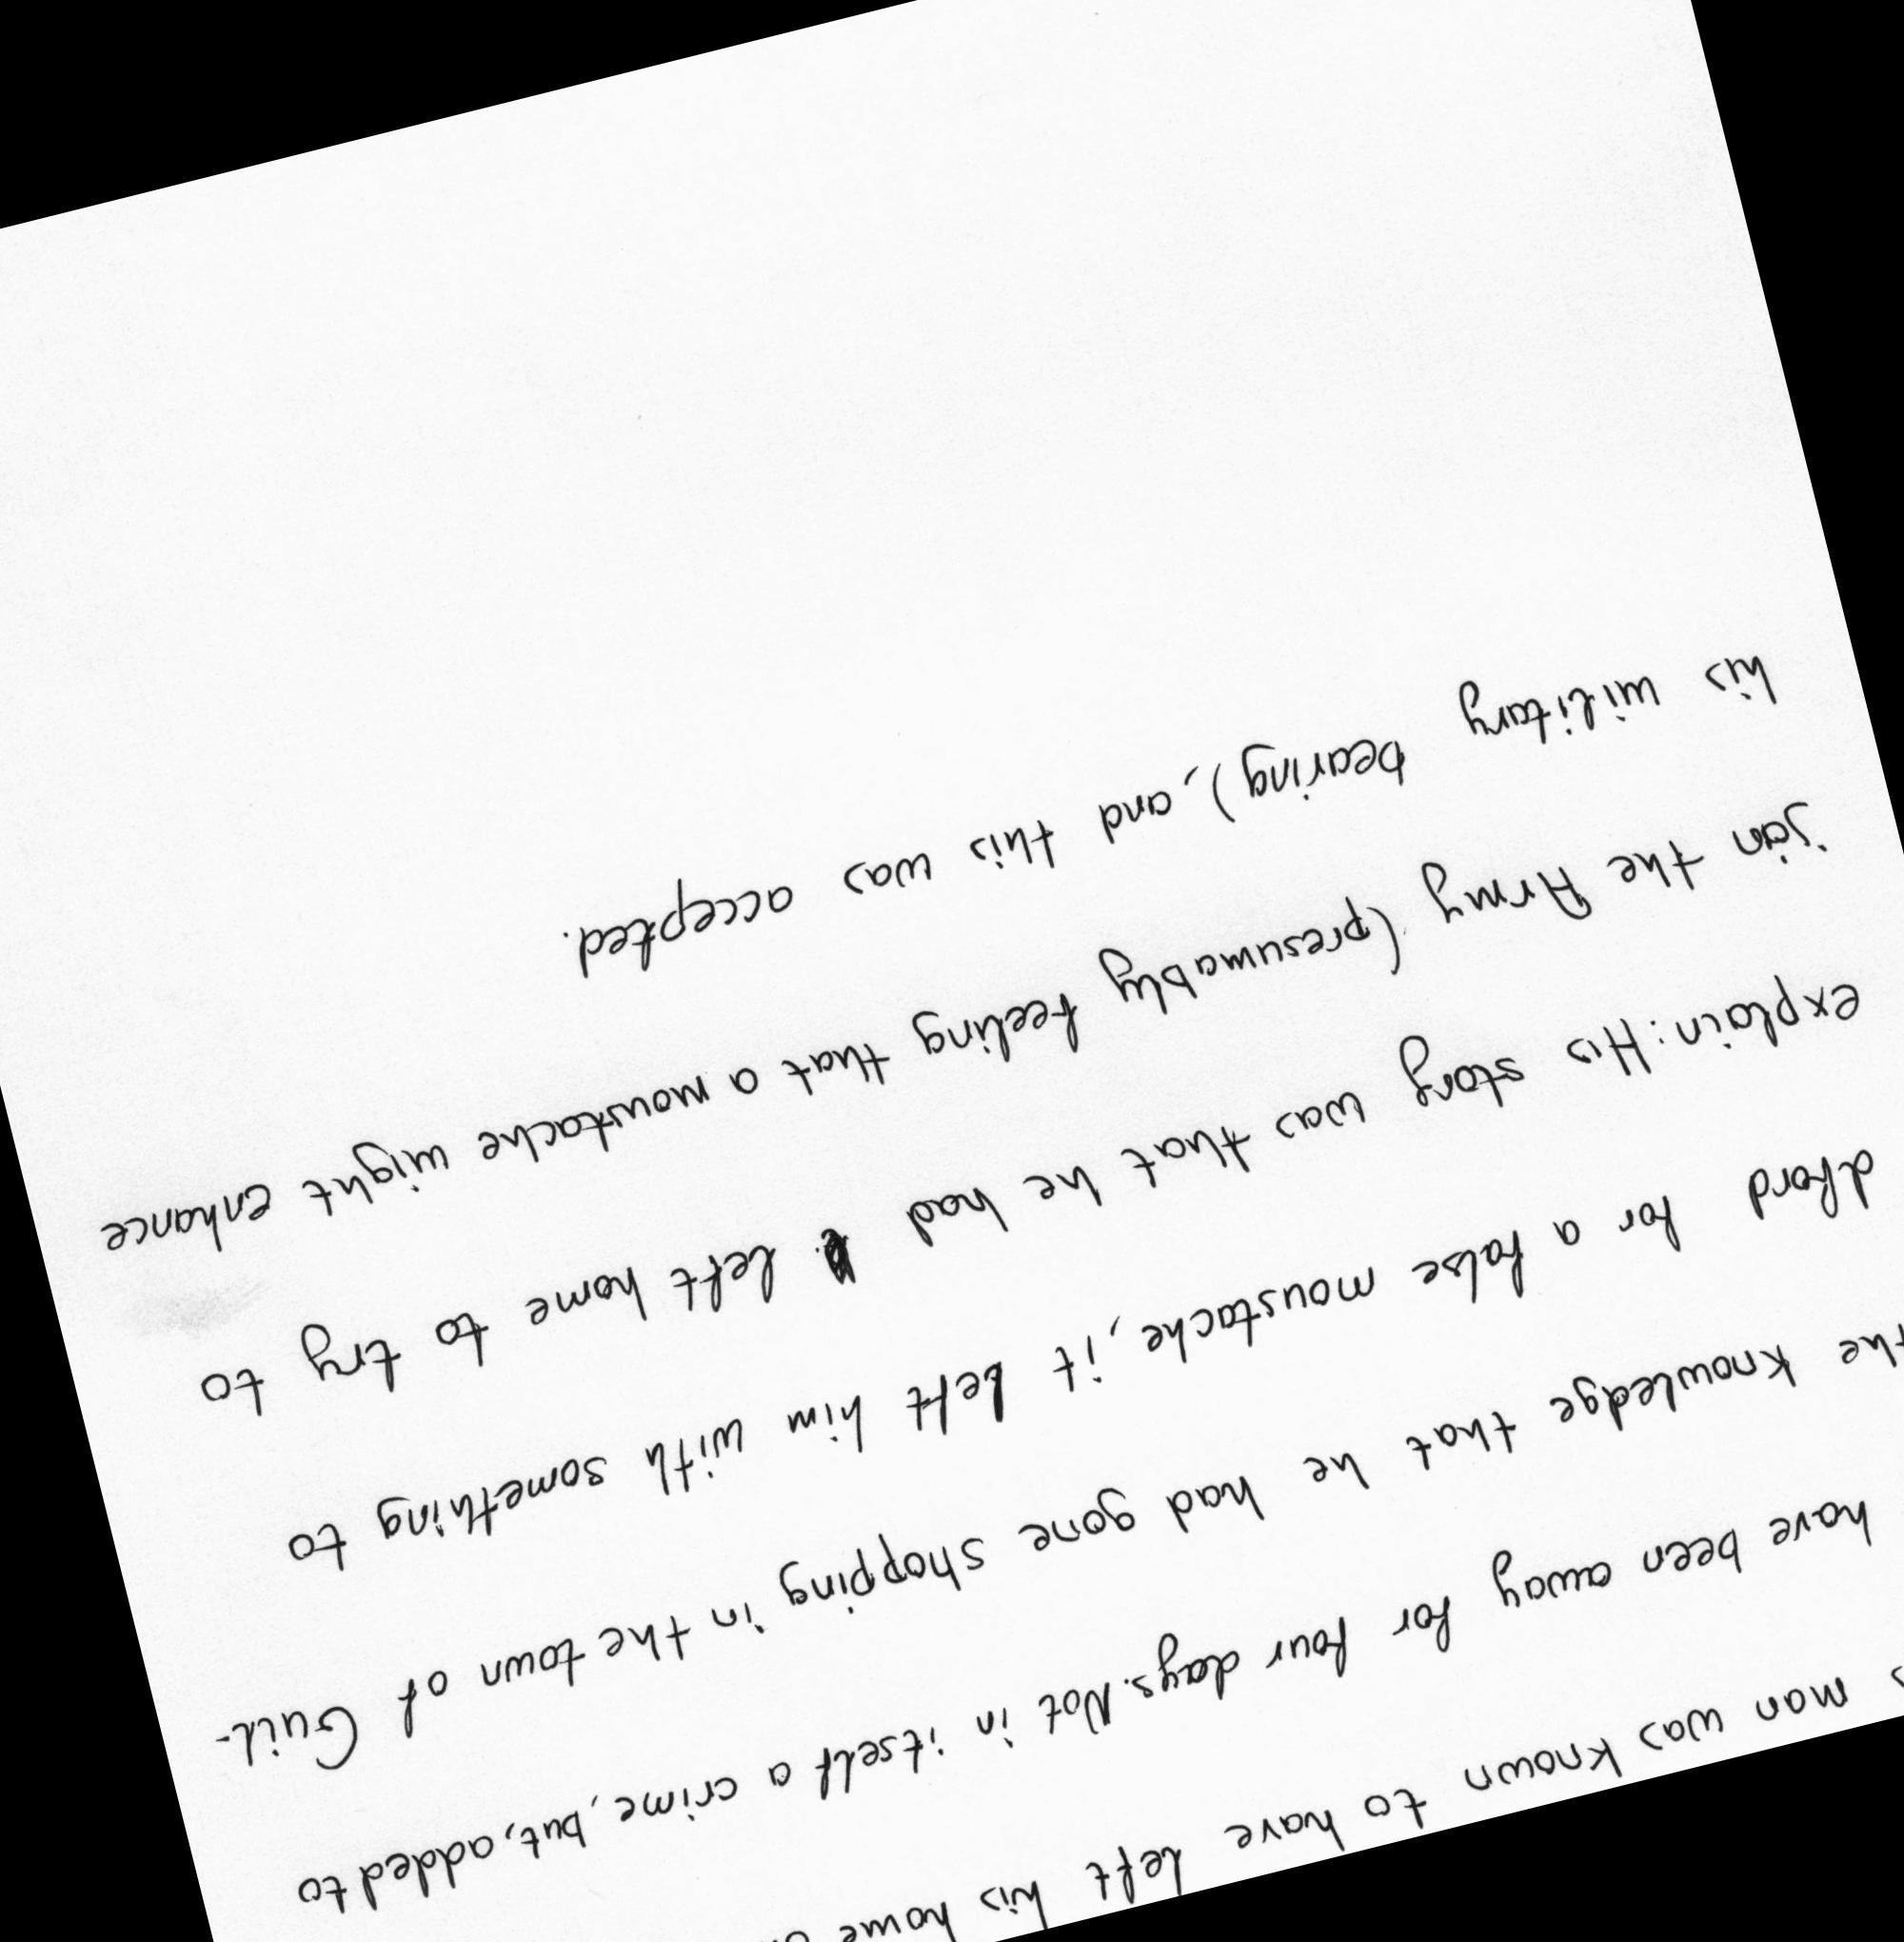 man was known to have left his home
have been away for four days. Not in itself a crime, but, added to
the knowledge that he had gone shopping in the town of Guil-
dford for a false moustache, it left him with something to
explain: His story was that he had left home to try to
join the Army (presumably feeling that a moustache might enhance
his military bearing), and this was accepted.